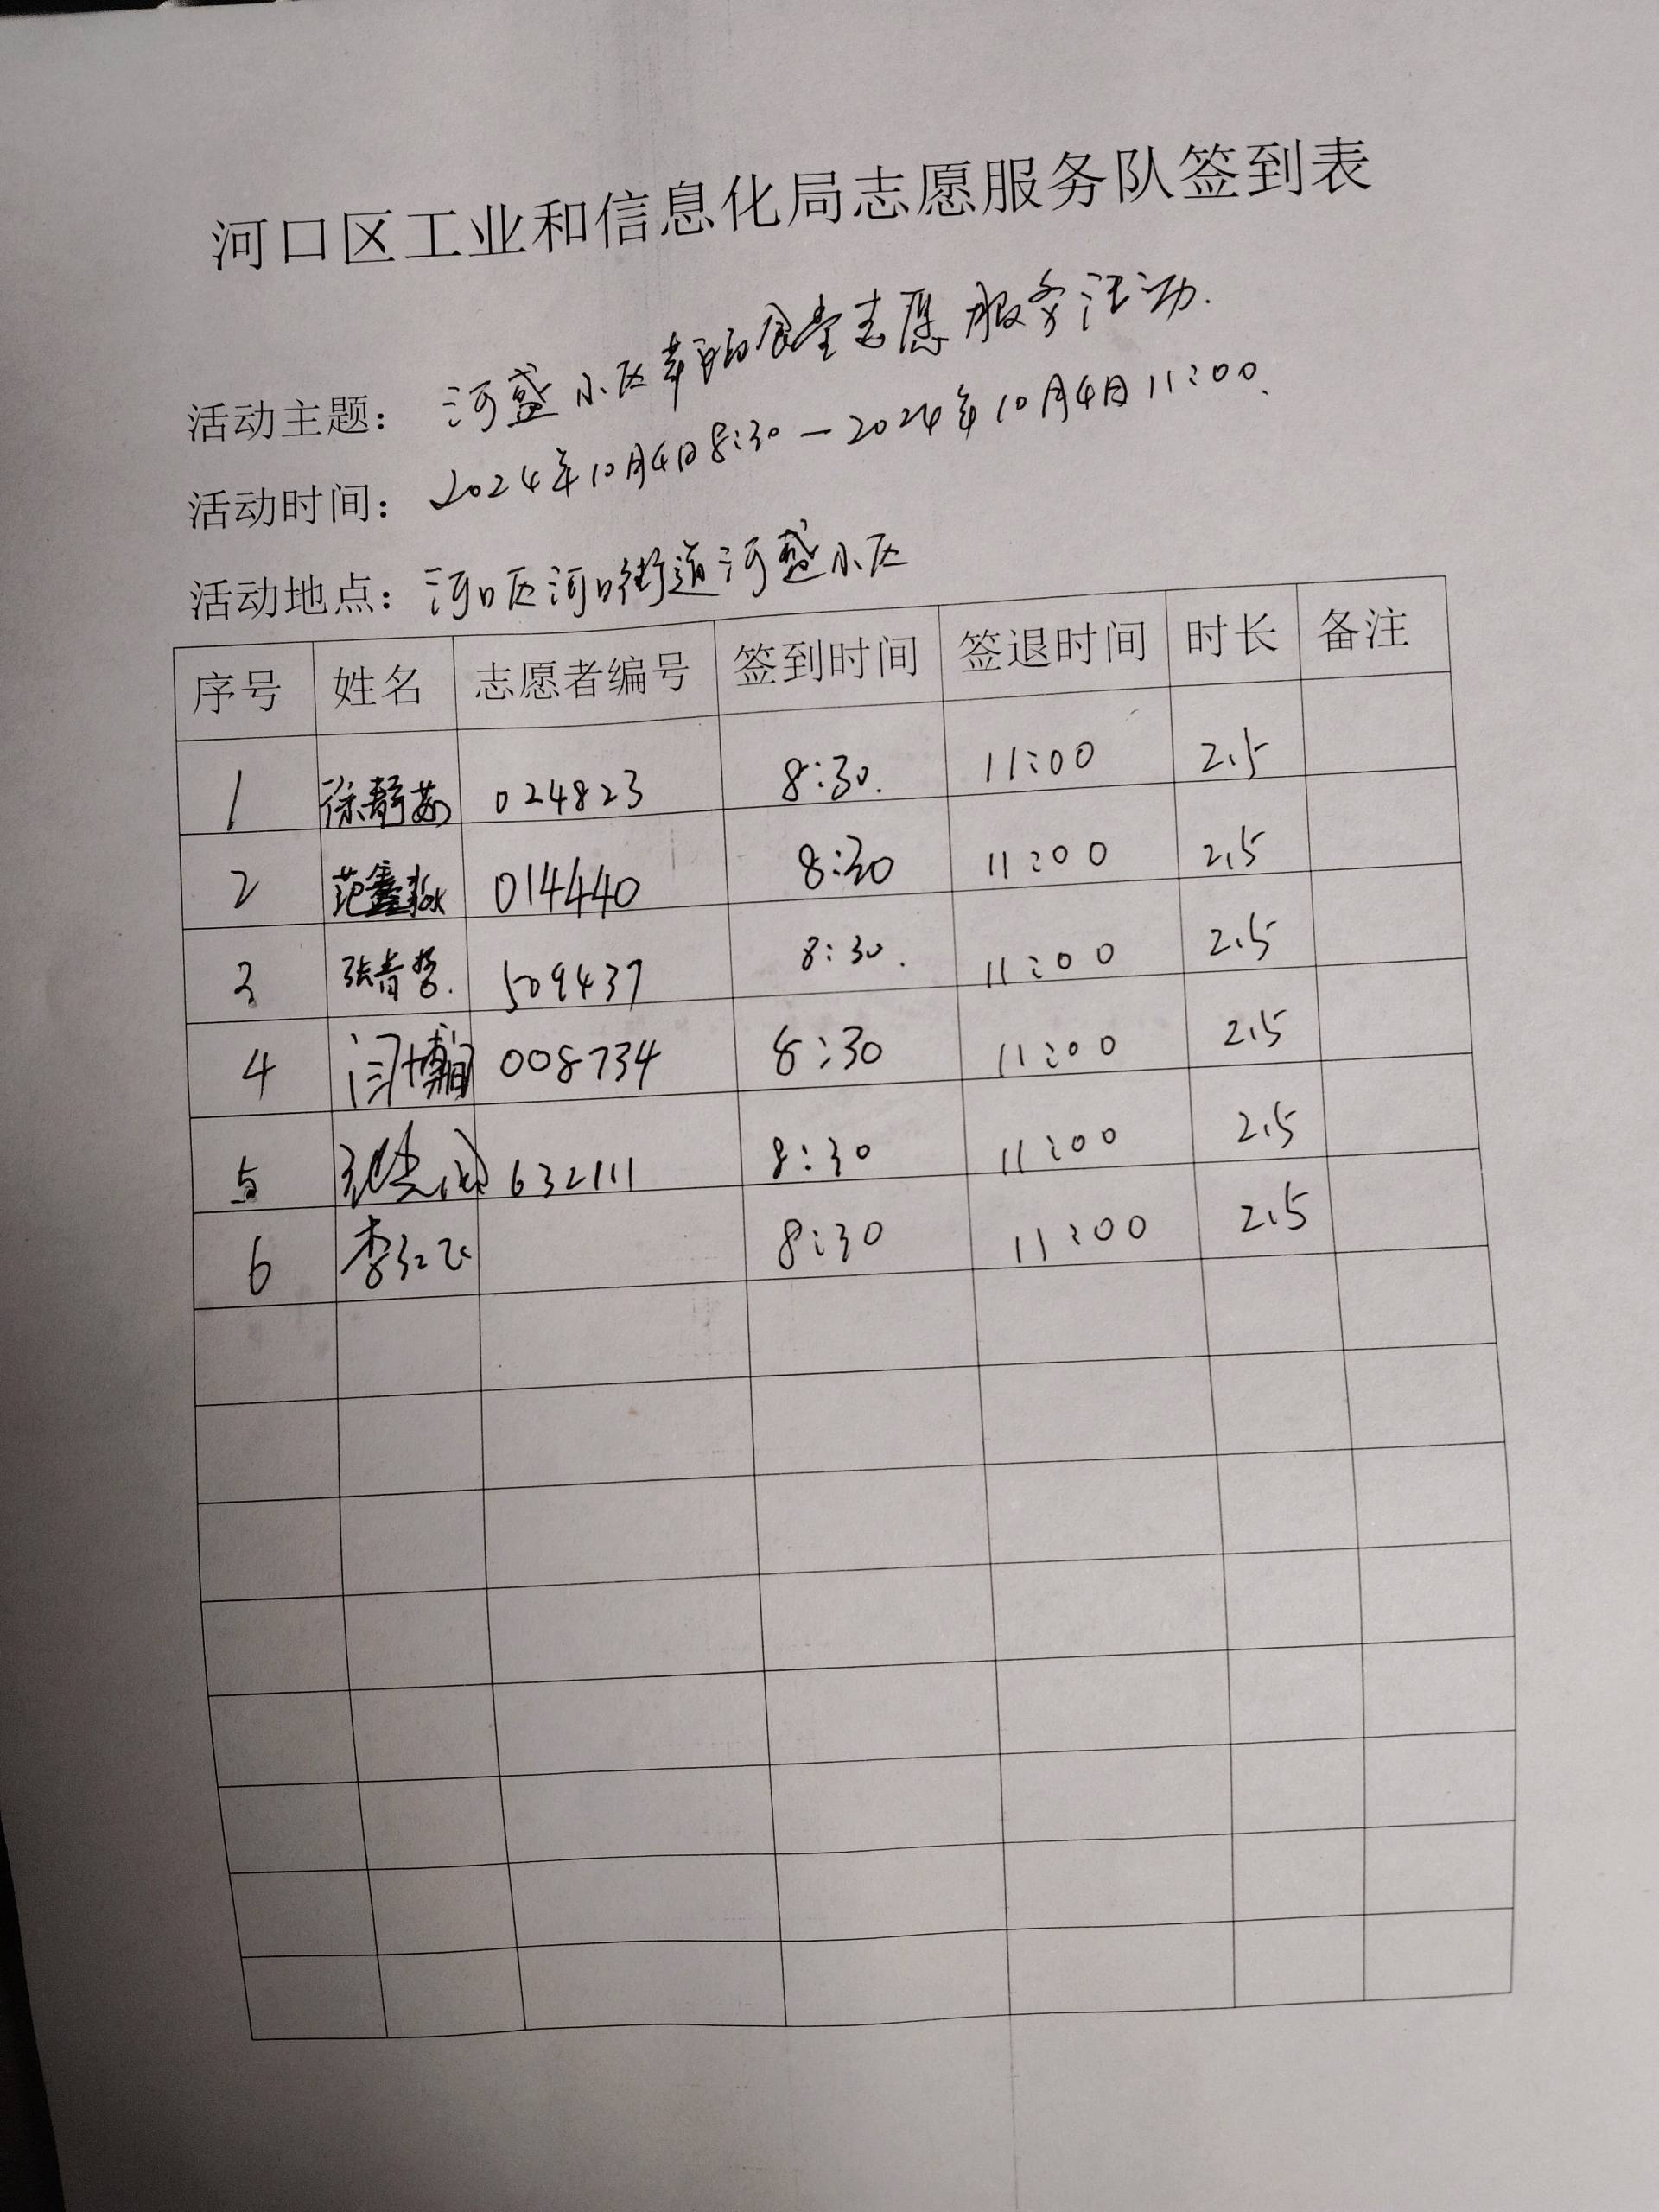 河口区工业和信息化局志愿服务队签到表
活动主题： 河盛小区幸福食堂志愿服务活动.
活动时间： 2024年10月4日8:30—2024年10月4日11:00.
活动地点： 河口区河口街道河盛小区
序号 姓名 志愿者编号 签到时间 签退时间 时长 备注
1 徐静茹 024823 8:30. 11:00 2.5
2 范鑫淼 014440 8:30 11:00 2.5
3 张青哲. 509437 8:30. 11:00 2.5
4 闫博 008734 8:30 11:00 2.5
5 632111 8:30 11:00 2.5
6 李红飞 8:30 11:00 2.5